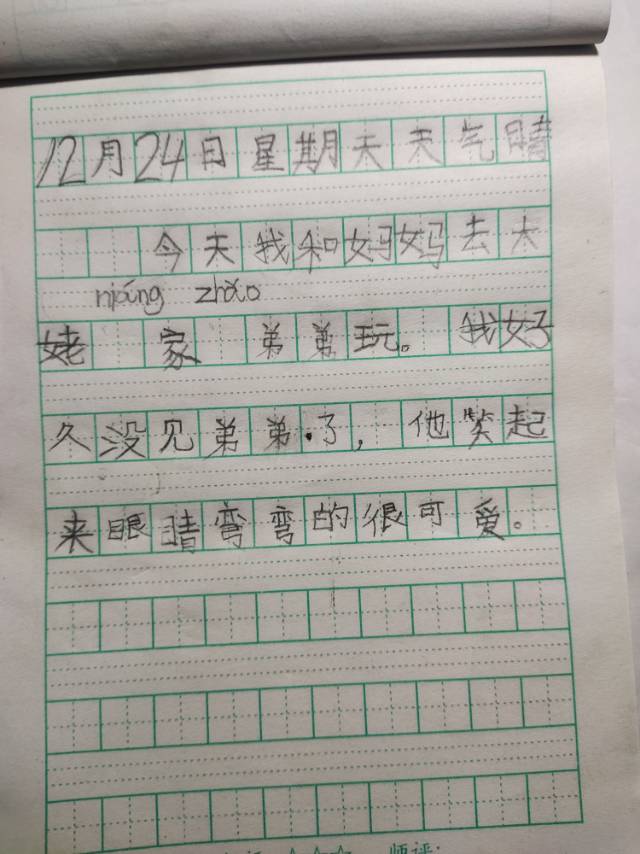 12月24日星期天天气晴
今天我和妈妈去太
niáng zhǎo
姥 家 弟弟玩。 我好
久没见弟弟.了, 他笑起
来眼睛弯弯的很可爱。
师评: